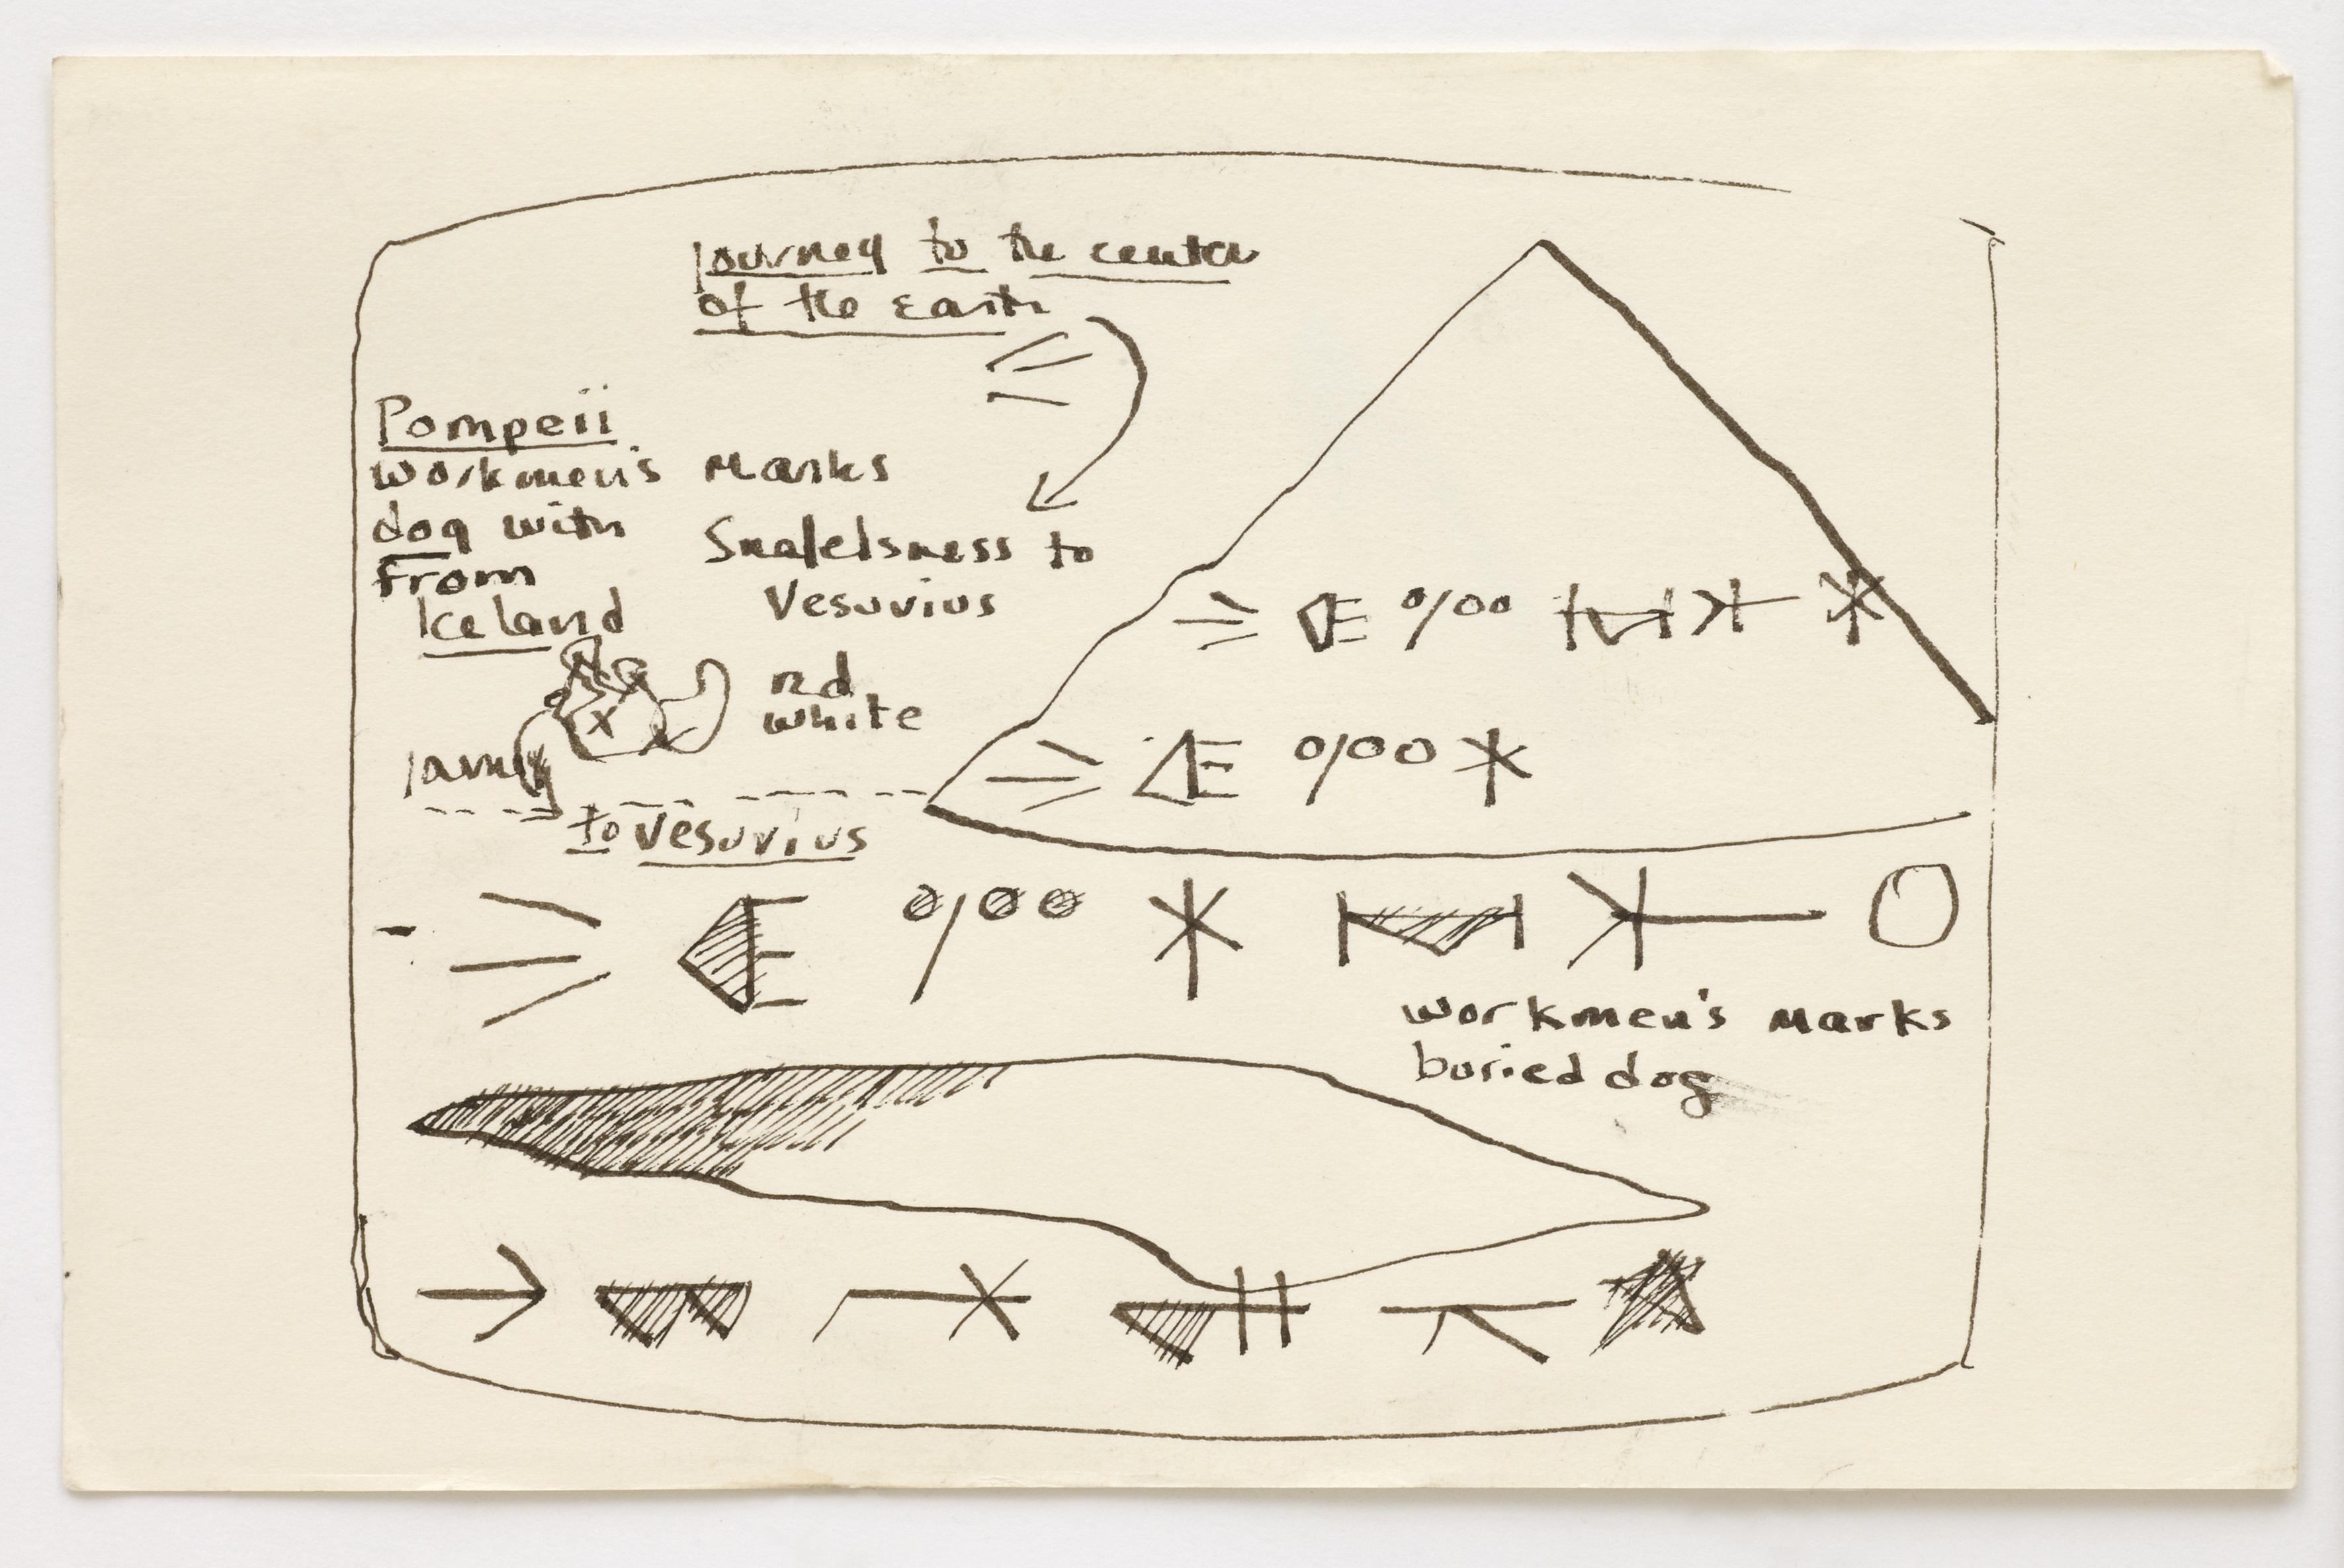 Journey to the center
of the earth
Pompeii
workmen's marks
dog with
from
Iceland
Snafelsness to
Vesuvius
red
white
to Vesuvius
workmen's marks
buried dog